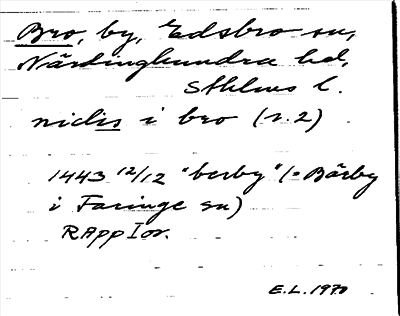 Bro, by, Edsbro sn,
Närdinghundra hd,
Sthlms l.
niclis i bro (r. 2)
1443 12/12 "berby" (= Bärby
i Faringe sn)
RAppIor.
E.L. 1970